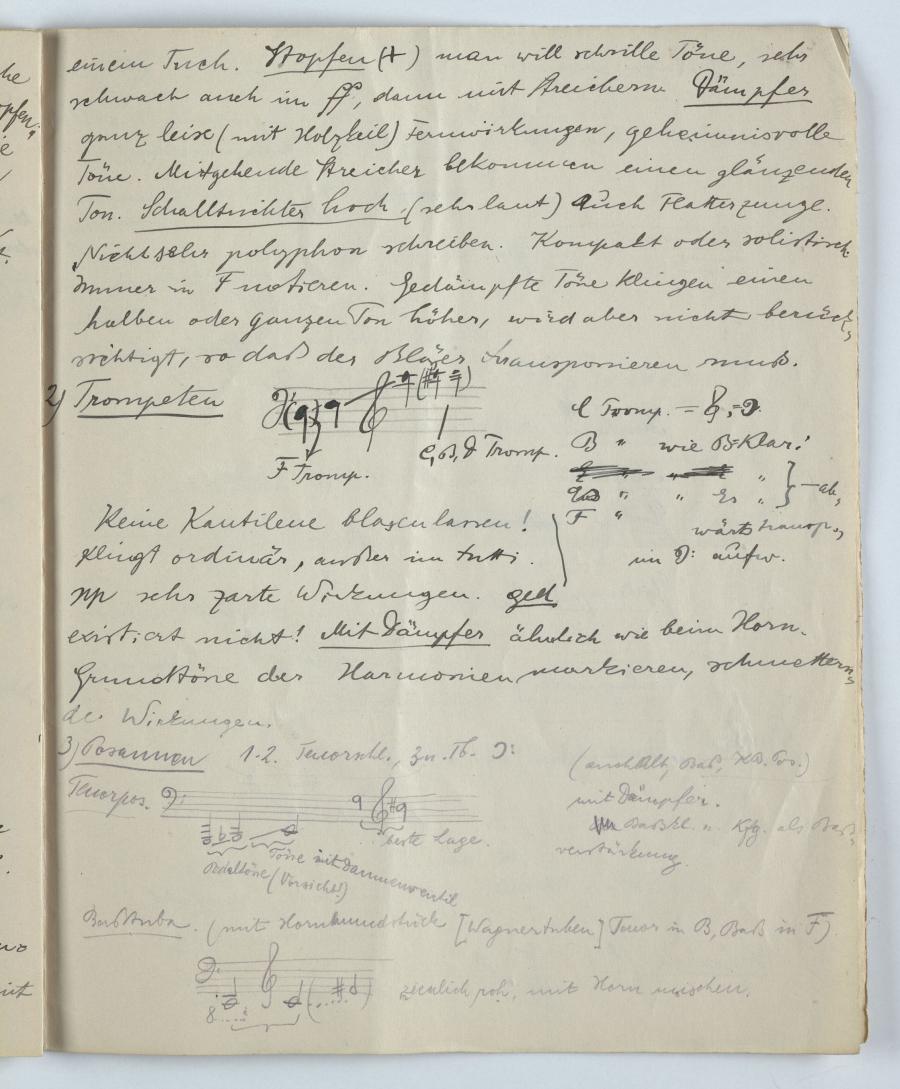 einem Tuch. Stopfen (+) man will schrille Töne, sehr
schwach auch im ff, dann mit Streichern. Dämpfer
ganz leise (mit Holzkeil) Fernwirkungen, geheimnisvolle
Töne. Mitgehende Streicher bekommen einen glänzenden
Ton. Schalltrichter hoch (sehr laut) Auch Flatterzunge.
Nicht sehr polyphon schreiben. Kompakt oder solistisch.
Immer in F notieren. Gedämpfte Töne klingen einen
halben oder ganzen Ton höher, wird aber nicht berück-
sichtigt, so daß der Bläser transponieren muß.
2) Trompeten
F Tromp.
C, B, D Tromp.
C Tromp. =
B " wie B=Klar.
Es " " Es "
F "
} – ab-
wärts transp.,
im 𝄢: aufw.
Keine Kantilene blasen lassen!
Klingt ordinär, außer im tutti.
pp sehr zarte Wirkungen. ged.
existiert nicht! Mit Dämpfer ähnlich wie beim Horn.
Grundtöne der Harmonien markieren, schmettern-
de Wirkungen.
3) Posaunen 1-2. Tenorschl., 3 u. Tb. 𝄢:
(auch Alt, Baß, KB. Pos.)
Tenorpos.
mit Dämpfer.
Baßkl. u. Kfg. als Baß-
verstärkung.
beste Lage.
Pedaltöne (Vorsicht!)
Töne mit Daumenventil
Baßtuba. (mit Hornmundstück [Wagnertuben] Tenor in B, Baß in F).
8.....
ziemlich roh, mit Horn mischen.